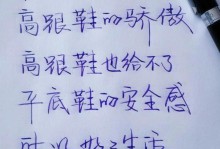 高跟鞋的骄傲
高跟鞋也给不了
平底鞋的安全感